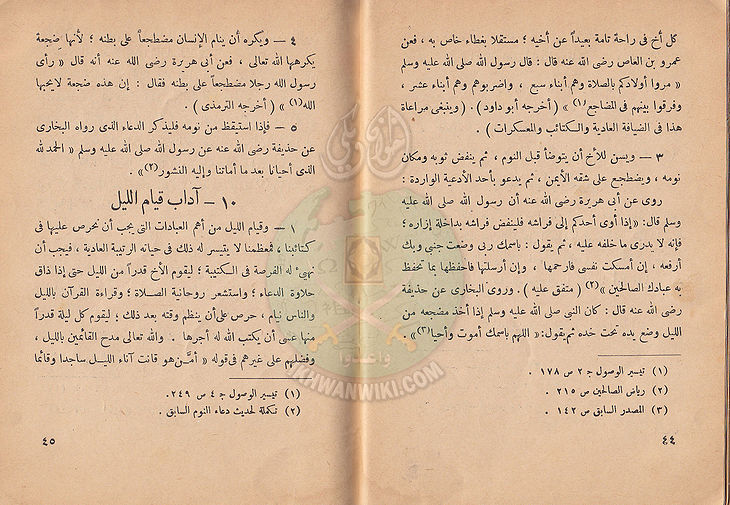 كل أخ فى راحة تامة بعيداً عن أخيه ؛ مستقلا بغطاء خاص به ، فعن
عمرو بن العاص رضى الله عنه قال : قال رسول الله صلى الله عليه وسلم
« مروا أولادكم بالصلاة وهم أبناء سبع ، واضربوهم وهم أبناء عشر ،
وفرقوا بينهم فى المضاجع(١) » ( أخرجه أبو داود ) . ( وينبغى مراعاة
هذا فى الضيافة العادية والكتائب والمعسكرات ) .
٣ — ويسن للأخ أن يتوضأ قبل النوم ، ثم ينفض ثوبه ومكان
نومه ، ويضطجع على شقه الأيمن ، ثم يدعو بأحد الأدعية الواردة :
روى عن أبى هريرة رضى الله عنه أن رسول الله صلى الله عليه
وسلم قال: «إذا أوى أحدكم إلى فراشه فلينفض فراشه بداخلة إزاره ؛
فإنه لا يدرى ما خلفه عليه ، ثم يقول : باسمك ربى وضعت جنبى وبك
أرفعه ، إن أمسكت نفسى فارحمها ، وإن أرسلتها فاحفظها بما تحفظ
به عبادك الصالحين »(٢) ( متفق عليه ) . وروى البخارى عن حذيفة
رضى الله عنه قال : كان النبى صلى الله عليه وسلم إذا أخذ مضجعه من
الليل وضع يده تحت خده ثم يقول: « اللهم باسمك أموت وأحيا(٣)»
(١) تيسير الوصول ج ٢ ص ١٧٨ .
(٢) رياض الصالحين ص ٢١٥ .
(٣) المصدر السابق ص ١٤٢ .
٤٤
٤ — ويكره أن ينام الإنسان مضطجعاً على بطنه ؛ لأنها ضجعة
يكرهها الله تعالى ، فعن أبى هريرة رضى الله عنه أنه قال « رأى
رسول الله رجلا مضطجعاً على بطنه فقال : إن هذه ضجعة لايحبها
الله(١) » ( أخرجه الترمذى ) .
٥ — فإذا استيقظ من نومه فليذكر الدعاء الذى رواه البخارى
عن حذيفة رضى الله عنه عن رسول الله صلى الله عليه وسلم « الحمد لله
الذى أحيانا بعد ما أماتنا وإليه النشور(٢) ».
١٠ — آداب قيام الليل
١ — وقيام الليل من أهم العبادات التى يجب أن نحرص عليها فى
كتائبنا ، فمعظمنا لا يتيسر له ذلك فى حياته الرتيبة العادية ، فيجب أن
نهيىء له الفرصة فى الكتيبة ؛ ليقوم الأخ قدراً من الليل حتى إذا ذاق
حلاوة الدعاء ؛ واستشعر روحانية الصلاة ؛ وقراءة القرآن بالليل
والناس نيام ، حرص على أن ينظم وقته بعد ذلك ؛ ليقوم كل ليلة قدراً
منها عسى أن يكتب الله له أجرها . والله تعالى مدح القائمين بالليل ،
وفضلهم على غيرهم فى قوله « أمَّن هو قانت آناء الليل ساجدا وقائما
(١) تيسير الوصول ج ٤ ص ٢٤٩.
(٢) تكملة لحديث دعاء النوم السابق .
٤٥
وأعدوا
IKHWANWIKI.COM